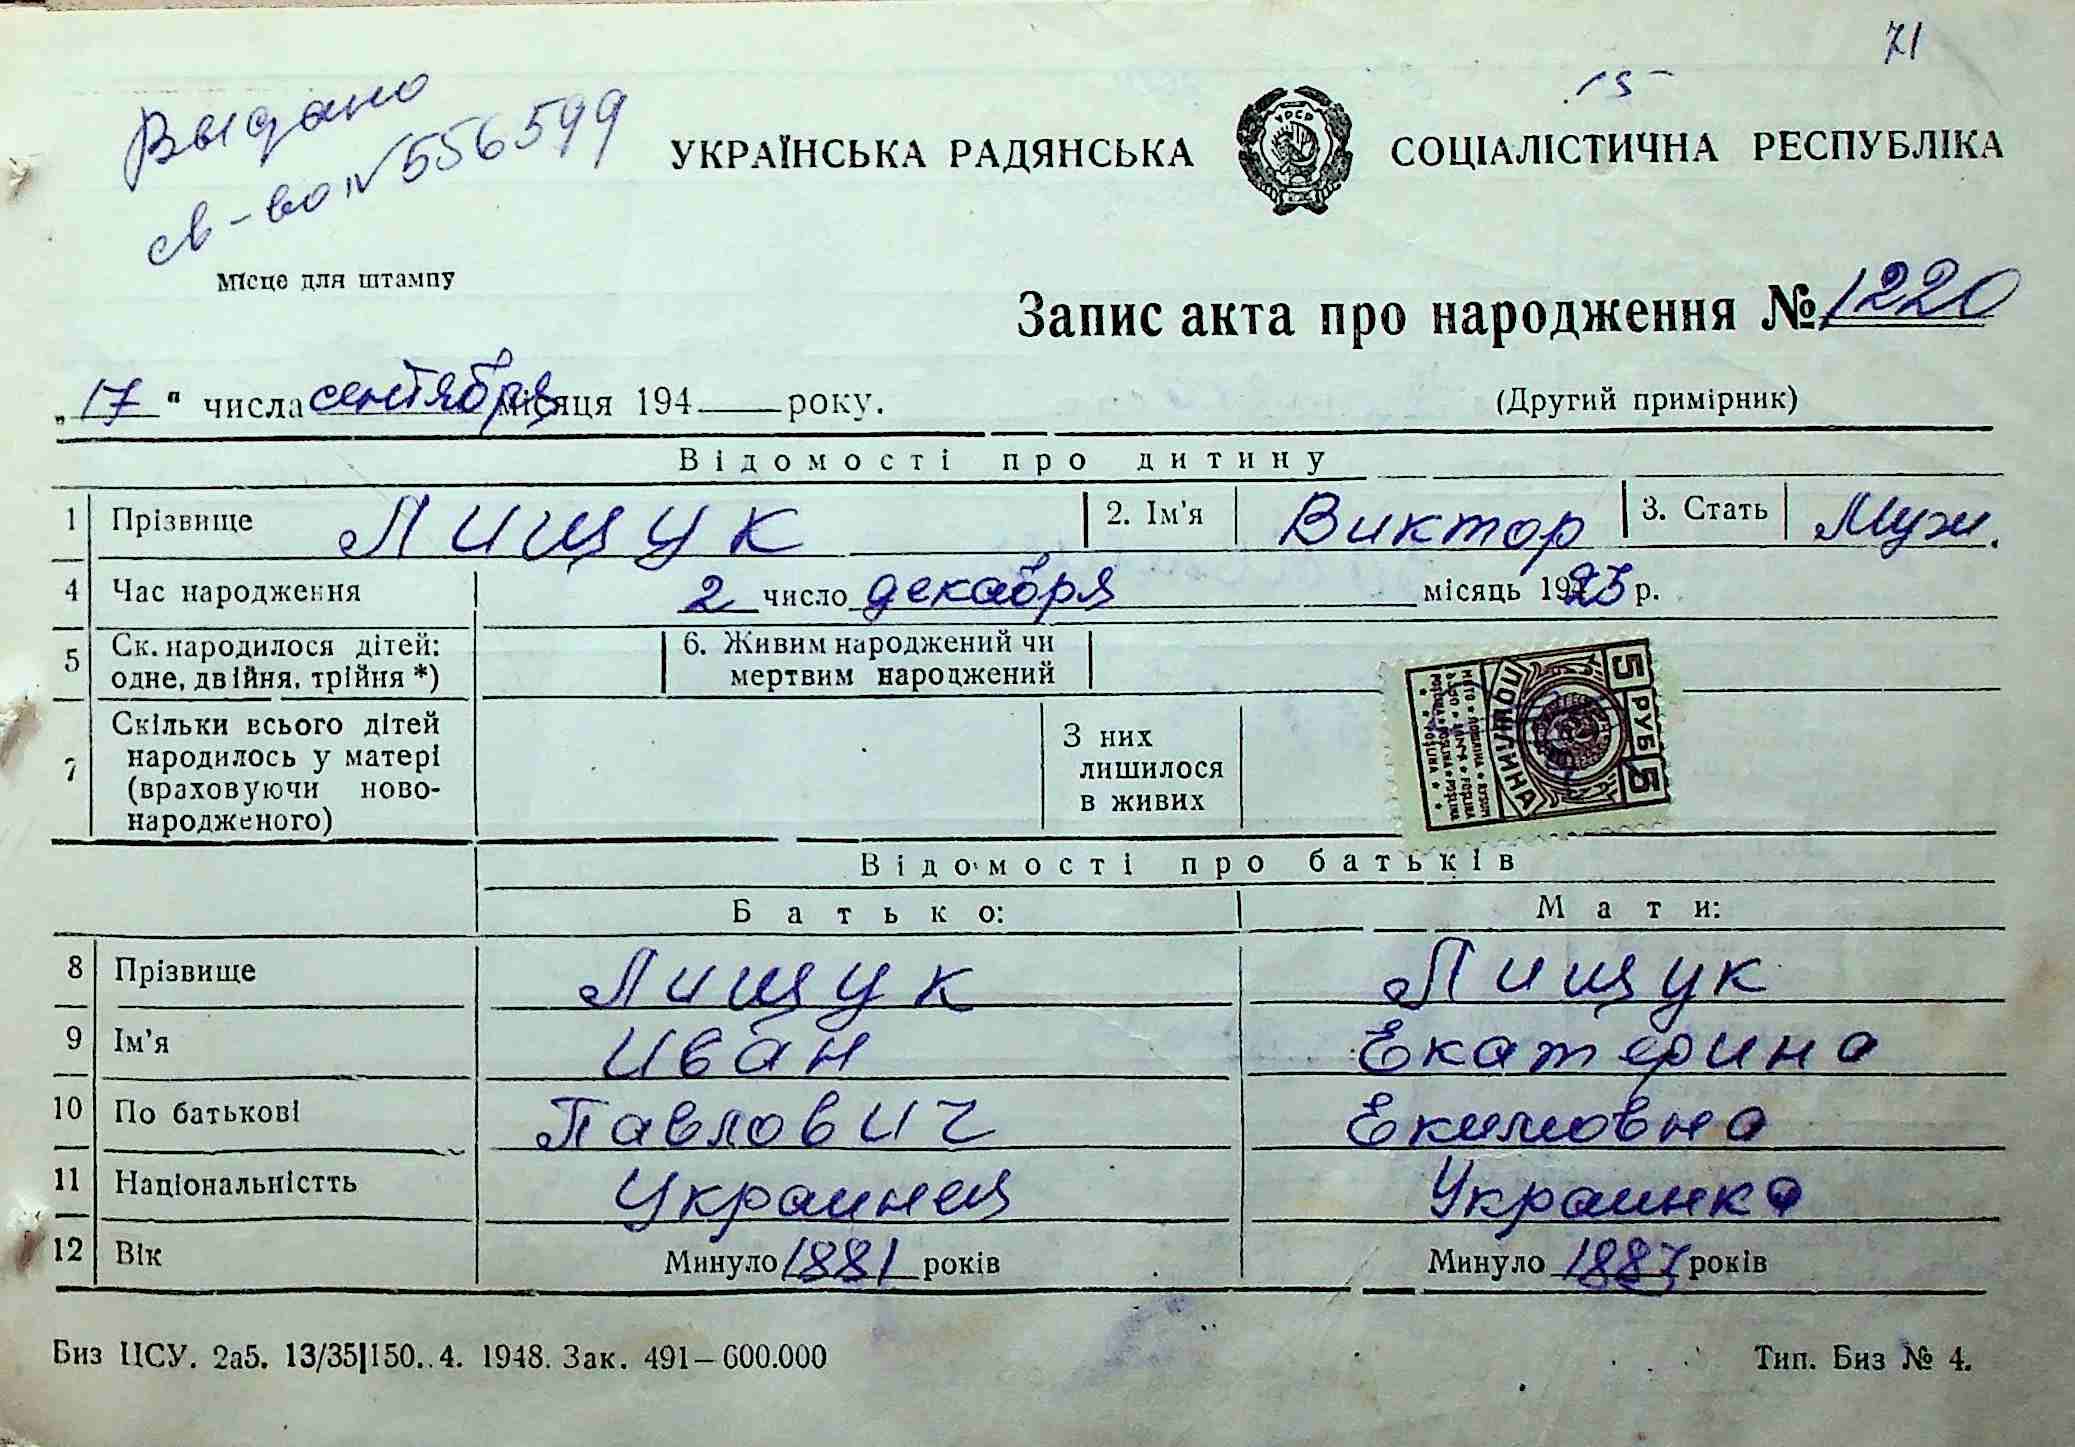 71
15
Выдано
св-во № 556599
УКРАЇНСЬКА РАДЯНСЬКА СОЦІАЛІСТИЧНА РЕСПУБЛІКА
УРСР
Місце для штампу
Запис акта про народження № 1220
„17" числа сентября місяця 194 року.
(Другий примірник)
Відомості про дитину
1 Прізвище Лищук 2. Ім'я Виктор 3. Стать Муж.
4 Час народження 2 число декабря місяць 1923 р.
5 Ск. народилося дітей: одне, двійня, трійня *) 6. Живим народжений чи мертвим народжений
7 Скільки всього дітей народилось у матері (враховуючи ново-народженого) З них лишилося в живих
5 РУБ 5
Відомості про батьків
Батько: Мати:
8 Прізвище Лищук Лищук
9 Ім'я Иван Екатерина
10 По батькові Павлович Екимовна
11 Національністть Украинец Украинка
12 Вік Минуло 1881 років Минуло 1887 років
Биз ЦСУ. 2а5. 13/35|150. 4. 1948. Зак. 491–600.000
Тип. Биз № 4.